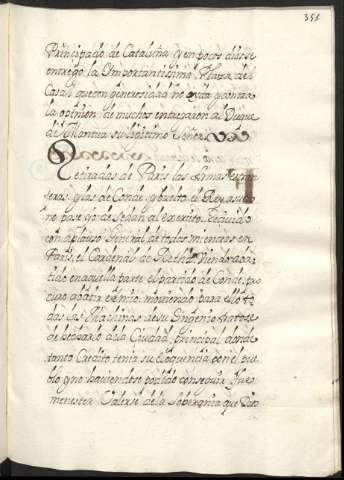 351
Principado de Cataluña, y en pocos dias se
entregó la Importantissima Plaza del
Casal que con generosidad no oyda y contra
la opinion de muchos entregaron al Duque
de Mantua su legitimo Señor
Retiradas de Paris las Armas estran
seras, y las de Conde, y buelto el Rey a su tro
no paso yo de Sedan al exercito, Reciuido
con aplauso General de todos mientras en
Paris, el Cardenal de Rethz, viendo aba
tido en aquella parte el partido de Conde, pro
curo mouiendo para ello to
das las Machinas de su Ingenio, trato se
de hecharlo de la Ciudad, principal donde
tanto Credito tenia su eloquencia con el pue
blo y no hauiendose podido conseguir fue
menester Valerse de la Soberania que Dio